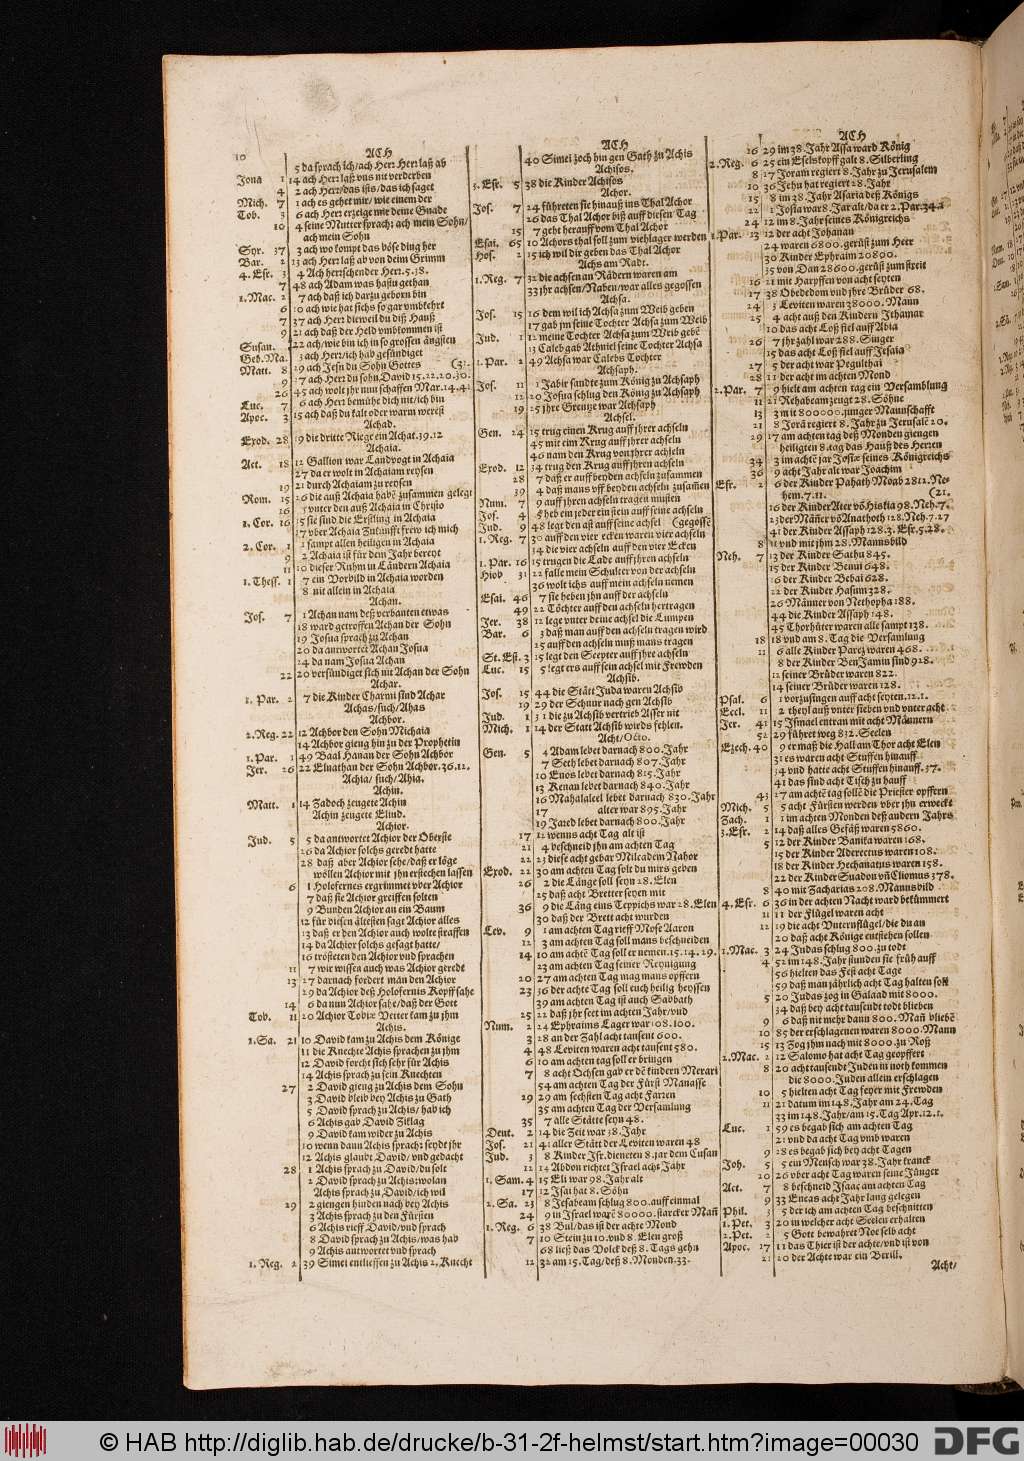 10
ACH
5 da sprach ich/ach Herr Herr laß ab
Jona 1 14 ach Herr laß vns nit verderben
4 2 ach Herr/das ists/das ich saget
Mich. 7 1 ach es gehet mir/ wie einem der
Tob. 3 6 ach Herr erzeige mir deine Gnade
10 4 seine Mutter sprach: ach mein Sohn/
ach mein Sohn
Syr. 37 3 ach wo kompt das böse ding her
Bar. 2 13 ach Herr laß ab von deim Grimm
4. Esr. 3 4 Ach herrschender Herr. 5.38.
7 48 ach Adam was hastu gethan
1. Mac. 2 7 ach daß ich darzu geborn bin
6 10 ach wie hat sichs so gar vmbkehrt
7 37 ach Herr dieweil du diß Hauß
9 21 ach daß der Held vmbkommen ist
Susan. 22 ach/wie bin ich in so grossen ängsten
Geb. Ma. 3 ach Herr/ich hab gesündiget
Matt. 8 29 ach Jesu du Sohn Gottes (31.
9 27 ach Herr du sohn David 15.22.20.30.
26 45 ach wolt jhr nun schaffen Mar.14.41
Luc. 7 6 ach Herr bemühe dich nit/ich bin
Apoc. 3 15 ach daß du kalt oder warm werest
Achad.
Exod. 28 19 die dritte Riege ein Achat.39.12
Achaia.
Act. 18 12 Gallion war Landvogt in Achaia
27 da er wolt in Achaiam reysen
19 21 durch Achaiam zu reysen
Rom. 15 26 die auß Achaia habē zusammen gelegt
16 5 vnter den auß Achaia in Christo
1. Cor. 16 15 sie sind die Erstling in Achaia
17 vber Achaia Zukunfft frew ich mich
2. Cor. 1 1 sampt allen heiligen in Achaia
9 2 Achaia ist für dem Jahr bereyt
11 10 dieser Ruhm in Ländern Achaia
1. Thess. 1 7 ein Vorbild in Achaia worden
8 nit allein in Achaia
Achan.
Jos. 7 1 Achan nam deß verbanten etwas
18 ward getroffen Achan der Sohn
19 Josua sprach zu Achan
20 da antwortet Achan Josua
24 da nam Josua Achan
22 20 versündiget sich nit Achan der Sohn
Achar.
1. Par. 2 7 die Kinder Charmi sind Achar
Achas/such/Ahas
Achbor.
2. Reg. 22 12 Achbor den Sohn Michaia
14 Achbor gieng hin zu der Prophetin
1. Par. 1 49 Baal Hanan der Sohn Achbor
Jer. 26 22 Elnathan der Sohn Achbor.36.12.
Achia/ such/Ahia.
Achin.
Matt. 1 14 Zadoch zeugete Achin
Achin zeugete Eliud.
Achior.
Jud. 5 5 da antwortet Achior der Oberste
26 da Achior solchs geredt hatte
28 daß aber Achior sehe/daß er löge
wöllen Achior mit jhn erstechen lassen
6 1 Holofernes ergrimmet vber Achior
7 daß sie Achior greiffen solten
9 Bunden Achior an ein Baum
12 für diesen ältesten sagt Achior alles
13 daß er den Achior auch wolte straffen
14 da Achior solchs gesagt hatte/
16 trösteten den Achior vnd sprachen
11 7 wir wissen auch was Achior geredt
13 27 darnach fordert man den Achior
29 da Achior deß Holofernis Kopff sahe
14 6 da nun Achior sahe/daß der Gott
Tob. 11 20 Achior Tobiæ Vetter kam zu jhm
Achis.
1. Sa. 21 10 David kam zu Achis dem Könige
11 die Knechte Achis sprachen zu jhm
12 David forcht sich sehr für Achis
14 Achis sprach zu sein Knechten
27 2 David gieng zu Achis dem Sohn
3 David bleib bey Achis zu Gath
5 David sprach zu Achis/ hab ich
6 Achis gab David Ziklag
9 David kam wider zu Achis
10 wenn dann Achis sprach: seydt jhr
12 Achis glaubt David/ vnd gedacht
28 1 Achis sprach zu David/du solt
2 David sprach zu Achis: wolan
Achis sprach zu David/ich wil
29 2 giengen hinden nach bey Achis
3 Achis sprach zu den Fürsten
6 Achis rieff David/vnd sprach
8 David sprach zu Achis/was hab
9 Achis antwortet vnd sprach
1. Reg. 2 39 Simei entlieffen zu Achis 2. Knecht
ACH
40 Simei zoch hin gen Gath zu Achis
Achisos.
3. Esr. 5 38 die Kinder Achisos
Achor.
Jos. 7 24 führeten sie hinauß ins Thal Achor
26 das Thal Achor biß auff diesen Tag
15 7 geht herauff vom Thal Achor
Esai. 65 10 Achors thal soll zum viehlager werden
Hos. 2 15 ich wil dir geben das Thal Achor
Achs am Radt.
1. Reg. 7 32 die achsen an Rädern waren am
33 jhr achsen/Naben/war alles gegossen
Achsa.
Jos. 15 16 dem wil ich Achsa zum Weib geben
17 gab jm seine Tochter Achsa zum Weib
Jud. 1 12 meine Tochter Achsa zum Weib gebē
13 Caleb gab Athniel seine Tochter Achsa
1. Par. 2 49 Achsa war Calebs Tochter
Achsaph.
Jos. 11 1 Jabir sandte zum König zu Achsaph
12 20 Josua schlug den König zu Achsaph
19 25 jhre Grenze war Achsaph
Achsel.
Gen. 24 15 trug einen Krug auff jhrer achseln
45 mit eim Krug auff jhrer achseln
46 nam den Krug von jhrer achseln
Exod. 12 34 trug den Krug auff jhren achseln
28 7 daß er auff beyden achseln zusammen
39 4 daß mans vff beyden achseln zusāmen
Num. 7 9 auff jhren achseln tragen musten
Jos. 4 5 heb ein jeder ein stein auff seine achseln
Jud. 9 48 legt den ast auff seine achsel (gegossē
1. Reg. 7 30 auff den vier ecken waren vier achseln
34 die vier achseln auff den vier Ecken
1. Par. 16 15 trugen die Lade auff jhren achseln
Hiob 31 22 falle mein Schulter von der achseln
36 wolt ichs auff mein achseln nemen
Esai. 46 7 sie heben jhn auff der achseln
49 22 Töchter auff den achseln hertragen
Jer. 38 12 lege vnter deine achsel die Lumpen
Bar. 6 3 daß man auff den achseln tragen wird
25 auff den achseln muß mans tragen
St. Est. 3 15 legt den Scepter auff jhre achseln
Luc. 15 5 legt ers auff sein achsel mit Frewden
Achsib.
Jos. 15 44 die Stätt Juda waren Achsib
19 29 der Schnur nach gen Achsib
Jud. 1 31 die zu Achsib vertrieb Asser nit
Mich. 1 14 der Statt Achsib wirds fehlen.
Acht/Octo.
Gen. 5 4 Adam lebet darnach 800. Jahr
7 Seth lebet darnach 807. Jahr
10 Enos lebet darnach 815. Jahr
13 Kenan lebet darnach 840. Jahr
16 Mahalaleel lebet darnach 830. Jahr
17 alter war 895. Jahr
19 Jared lebet darnach 800. Jahr
17 12 wenns acht Tag alt ist
21 4 beschneid jhn am achten Tag
22 23 diese acht gebar Milca dem Nahor
Exod. 22 30 am achten Tag solt du mirs geben
26 2 die Länge soll seyn 28. Elen
25 daß acht Bretter seyen mit
36 9 die Läng eins Teppichs war 28. Elen
30 daß der Brett acht wurden
Lev. 9 1 am achten Tag rieff Mose Aaron
12 3 am achten Tag soll mans beschneiden
14 10 am achtē Tag soll er nemen. 15.14.29.
23 am achten Tag seiner Reynigung
20 27 am achten Tag mag mans opffern
23 36 der achte Tag soll euch heilig heyssen
39 am achten Tag ist auch Sabbath
25 22 daß jhr seet im achten Jahr/vnd
Num. 2 24 Ephraims Lager war 108.100.
3 28 an der Zahl acht tausent 600.
4 48 Leviten waren acht tausent 580.
6 10 am achten tag soll er bringen
7 8 acht Ochsen gab er dē kindern Merari
54 am achten Tag der Fürst Manasse
29 29 am sechsten Tag acht Farren
35 am achten Tag der Versamlung
35 7 alle Stätte seyn 48.
Deut. 2 14 die Zeit war 38. Jahr
Jos. 21 41 aller Stätt der Leviten waren 48
Jud. 3 8 Kinder Jsr. dieneten 8. jar dem Cusan
12 14 Abdon richtet Jsrael acht Jahr
1. Sam. 4 15 Eli war 98. Jahr alt
17 12 Jsai hat 8. Söhn
2. Sa. 23 8 Jesabeam schlug 800. auff einmal
24 9 in Jsrael warē 80000. starcker Mañ
1. Reg. 6 38 Bul/das ist der achte Mond
7 10 Stein zu 10. vnd 8. Elen groß
68 ließ das Volck deß 8. Tags gehn
12 32 am 15. Tag/deß 8. Monden.33.
ACH
16 29 im 38. Jahr Assa ward König
2. Reg. 6 25 ein Eselskopff galt 8. Silberling
8 17 Joram regiert 8. Jahr zu Jerusalem
10 36 Jehu hat regiert 28. Jahr
15 8 im 38. Jahr Asaria deß Königs
22 1 Josia war 8. Jar alt/da er 2. Par.34.1
24 12 im 8. Jahr seines Königreichs
1. Par. 13 12 der acht Johanan
24 waren 6800. gerüst zum Heer
30 Kinder Ephraim 20800.
35 von Dan 28600. gerüst zum streit
16 21 mit Harpffen von acht seyten
17 38 Obededom vnd jhre Brüder 68.
24 3 Leviten waren 38000. Mann
25 4 acht auß den Kindern Jthamar
10 das acht Loß fiel auff Abia
26 7 jhr zahl war 288. Singer
15 das acht Loß fiel auff Jesaia
27 5 der acht war Pegulthai
28 11 der acht im achten Mond
2. Par. 7 9 hielt am achten tag ein Versamblung
11 21 Rehabeam zeugt 28. Söhne
13 3 mit 800000. junger Mannschafft
21 8 Jorā regiert 8. Jahr zu Jerusalē 20.
29 17 am achten tag deß Monden giengen
heiligten 8. tag das Hauß des Herren
34 3 im achtē jar Josiæ seines Königreichs
36 9 acht Jahr alt war Joachim
Esr. 2 6 der Kinder Pahath Moab 2812. Ne-
hem.7.11. (21.
16 der Kinder Ater võ Hiskia 98. Neh.7.
23 der Mäñer võ Anathoth 128. Neh.7.27
41 der Kinder Assaph 128.3. Esr.5.28.
8 11 vnd mit jhm 28. Mannsbild
Neh. 7 13 der Kinder Sathu 845.
15 der Kinder Bennu 648.
16 der Kinder Bebai 628.
22 der Kinder Hasum 328.
26 Männer von Nethopha 188.
44 die Kinder Assaph 148.
45 Thorhüter waren alle sampt 138.
18 18 vnd am 8. Tag die Versamlung
11 6 alle Kinder Parez waren 468.
8 der Kinder BenJamin sind 928.
12 seiner Brüder waren 822.
14 seiner Brüder waren 128.
Psal. 6 1 vorzusingen auff acht seyten.12.1.
Eccl. 11 2 theyl auß vnter sieben vnd vnter acht
Jer. 41 15 Jsmael entran mit acht Männern
52 29 führet weg 832. Seelen
Ezech. 40 9 er maß die Hall am Thor acht Elen
31 es waren acht Stuffen hinauff
34 vnd hatte acht Stuffen hinauff.37.
41 das sind acht Tisch zu hauff
43 27 am achtē tag sollē die Priester opffern
Mich. 5 5 acht Fürsten werden vber jhn erweckt
Zach. 1 1 im achten Monden deß andern Jahrs
3. Esr. 2 14 daß alles Gefäß waren 5860.
5 12 der Kinder Banita waren 168.
15 der Kinder Aderectus waren 108.
18 der Kinder Hechanatus waren 158.
22 der Kinder Suadon vñ Cliomus 378.
8 40 mit Zacharias 208. Mannsbild
4. Esr. 6 36 in der achten Nacht ward bekümmert
11 11 der Flügel waren acht
12 19 die acht Vnternflügel/die du an
20 daß acht Könige entstehen sollen
1. Mac. 3 24 Judas schlug 800. zu todt
4 52 im 148. Jahr stunden sie früh auff
56 hielten das Fest acht Tage
59 daß man jährlich acht Tag halten soll
5 20 Judas zog in Galaad mit 8000.
34 daß bey acht tausendt todt blieben
9 6 daß nit mehr dann 800. Mañ bliebē
10 85 der erschlagenen waren 8000. Mann
15 13 Zog jhm nach mit 8000. zu Roß
2. Mac. 2 12 Salomo hat acht Tag geopffert
8 20 acht tausendt Juden in noth kommen
die 8000. Juden allein erschlagen
10 5 hielten acht Tag feyer mit Frewden
11 21 datum im 148. Jahr am 24. Tag
33 im 148. Jahr/am 15. Tag Apr.12.1.
Luc. 1 59 es begab sich am achten Tag
2 21 vnd da acht Tag vmb waren
9 28 es begab sich bey acht Tagen
Joh. 5 5 ein Mensch war 38. Jahr kranck
20 26 vber acht Tag waren seine Jünger
Act. 7 8 beschneid Jsaac am achten Tag
9 33 Eneas acht Jahr lang gelegen
Phil. 3 5 der ich am achten Tag beschnitten
1. Pet. 3 20 in welcher acht Seelen erhalten
2. Pet. 2 5 Gott bewahret Noe selb acht
Apoc. 17 11 das Thier ist der achte/vnd ist von
21 20 der Achte war ein Berill.
Acht/
© HAB http://diglib.hab.de/drucke/b-31-2f-helmst/start.htm?image=00030
DFG